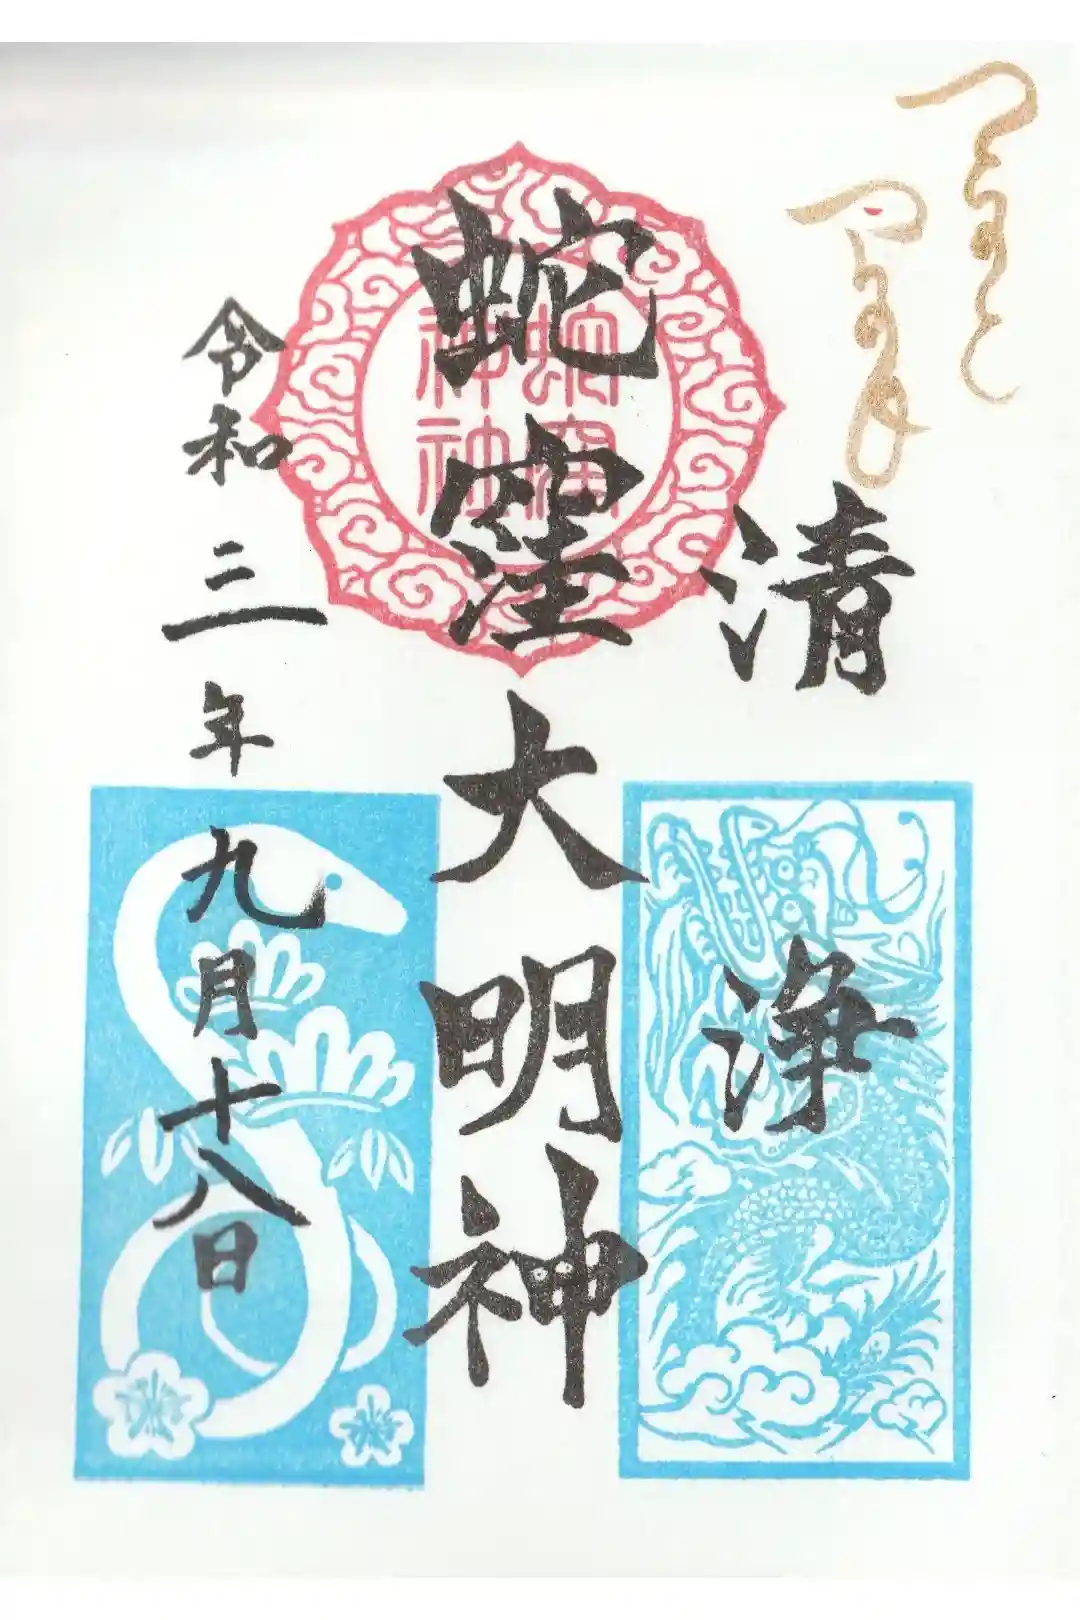 清浄
蛇窪大明神
蛇窪
神社
令和三年九月十八日